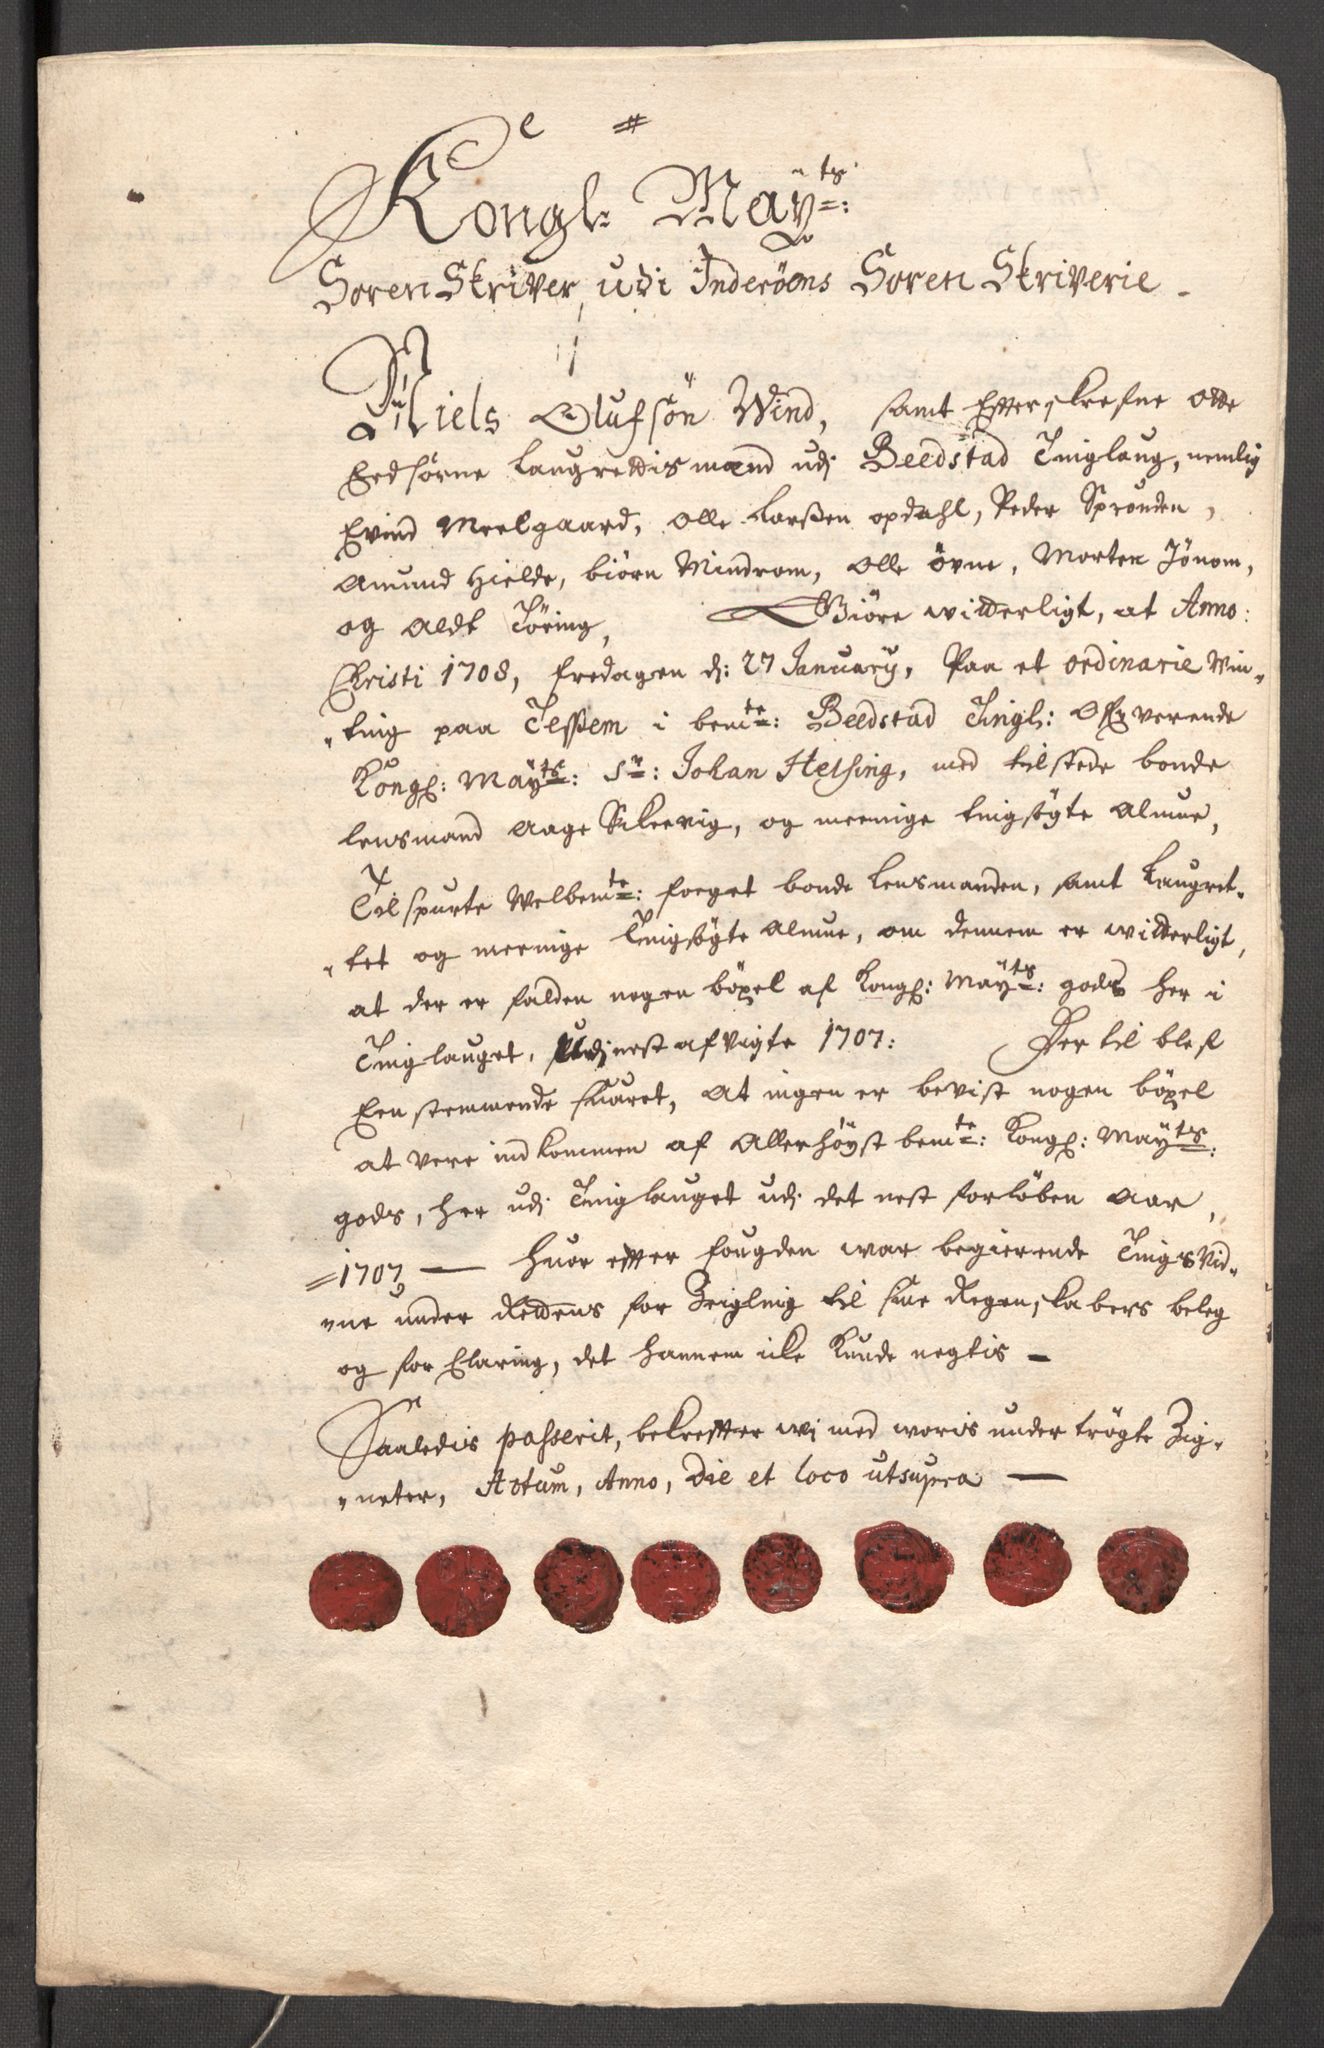 Kongl: Maÿ:ts
Soren Skriver, udi Inderöens Soren Skriverie
Niels Olufsön Wind, samt Effterskrefne otte
Eedsorne Laugrettismænd udj Beedstad Tinglaug, nemlig
Evind Meelgaard, Olle Larssen opdahl, Peder Sprouden,
Amund Hielde, biörn Mindrom, Olle övne, Morten Jönom,
og Aldt Töring, Giöre witterligt, at Anno:
Christi 1708, fredagen d: 27 January, Paa et ordinarie Win-
-ting paa Tessem i bemte: Beedstad Tingl: Offververende
Kongl: Maÿts: Sr: Johan Helsing, med tilstede bonde
lensmand Aage Skeevig, og meenige tingsögte Almue,
Tilspurte Welbemte: foeget bonde Lensmanden, samt Laugret-
-tet og meenige Tingsögte Almue, om dennem er witterligt,
at der er falden nogen böxel af Kongl: Maÿts: gods her i
Tinglauget, udj nest afvigte 1707: Der til blef
Eenstemmende suaret, At ingen er bevist nogen böxel
at vere indkommen af Allerhöyst bemte: Kongl: Mayts:
gods, her udj Tinglauget udj det nest forlöben Aar,
=1707 — huor effter fougden war begierende Tings Vid-
-ne under Rettens for Zeigling til sine Regenskabers beleg
og for Claring, det hannem icke Kunde negtis –
Saaledis passerit, bekreffter wj med woris under trögte Zig-
-neter, Actum, Anno, Die et loco utsupra —